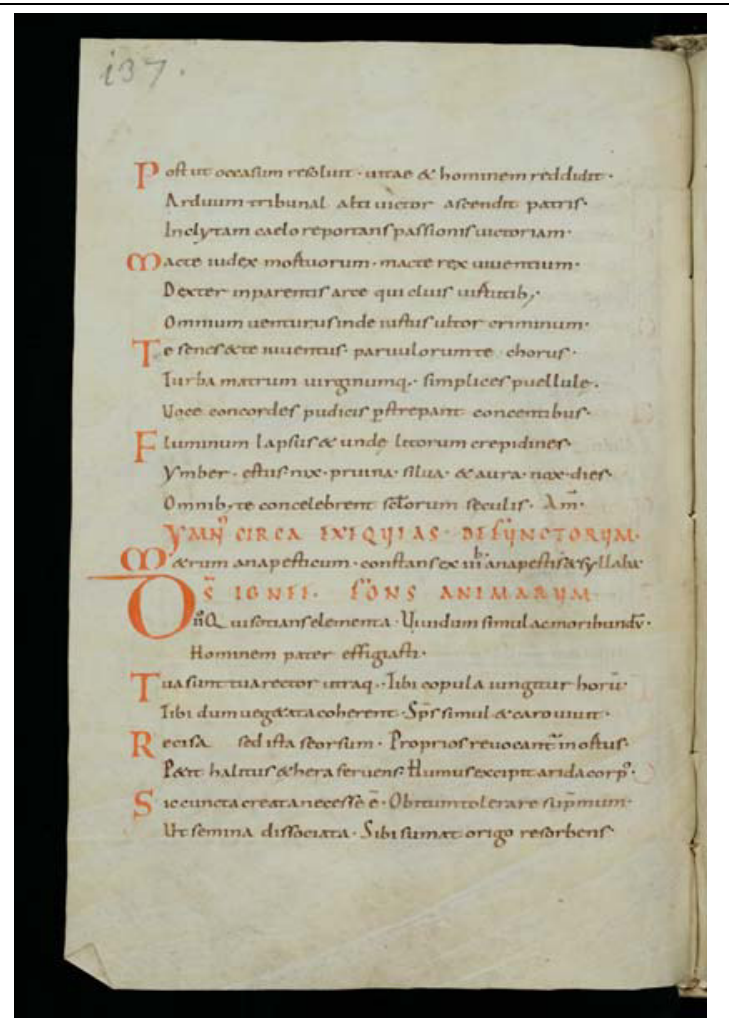 137.
Post ut occasum resoluit · uitae & hominem reddidit ·
Arduum tribunal alti uictor ascendit patris ·
Inclytam caelo reportans passionis uictoriam ·
Macte iudex mortuorum · macte rex uiuentium ·
Dexter in parentis arce qui cluis uirtutib; ·
Omnium uenturus inde iustus ultor criminum ·
Te senes & te iuuentus · paruulorum te chorus ·
Turba matrum uirginumq; · simplices puellule ·
Uoce concordes pudicis pstrepant concentibus ·
Fluminum lapsus & unde litorum crepidines ·
Ymber · estus nix · pruina · silua · & aura · nox · dies ·
Omnib; te concelebrent sclorum seculis · Am̄ ·
YMN CIRCA EXEQUIAS · DEFUNCTORUM ·
M&rum anapesticum · constans ex anapestis & syllaba ·
DS IGNEE · FONS ANIMARUM
Qui sotians elementa · Uiuidum simul ac moribundū ·
Hominem pater effigiasti ·
Tua sunt tua rector utraq; · Tibi copula iungitur horū ·
Tibi dum ueg&ata coherent · Sps̄ simul & caro uiuit ·
Recisa sed ista seorsum · Proprios reuocant in ortus ·
P&it halitus &hera feruens · Humus excipit arida corp ·
Sic cuncta creata necesse ē · Obitum tolerare sup̄mum ·
Ut semina dissociata · Sibi sumat origo resorbens ·